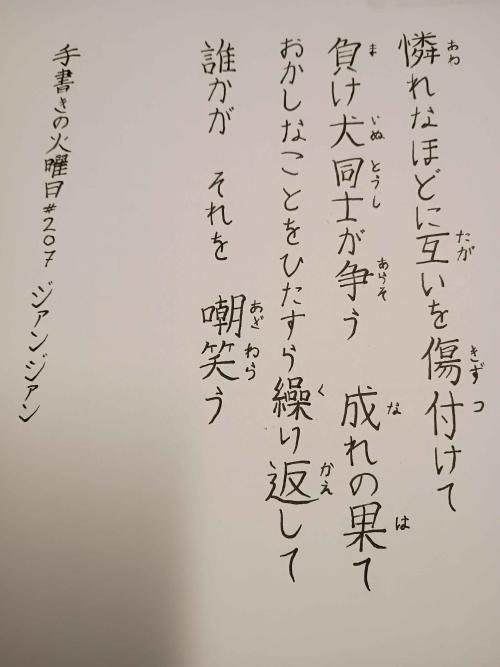 憐れなほどに互いを傷付けて
負け犬同士が争う 成れの果て
おかしなことをひたすら繰り返して
誰かが それを 嘲笑う
手書きの火曜日#207 ジァンジァン
あわ
たが
きず
つ
ま
いぬ
とうし
あらそ
な
は
く
かえ
あざ
わら